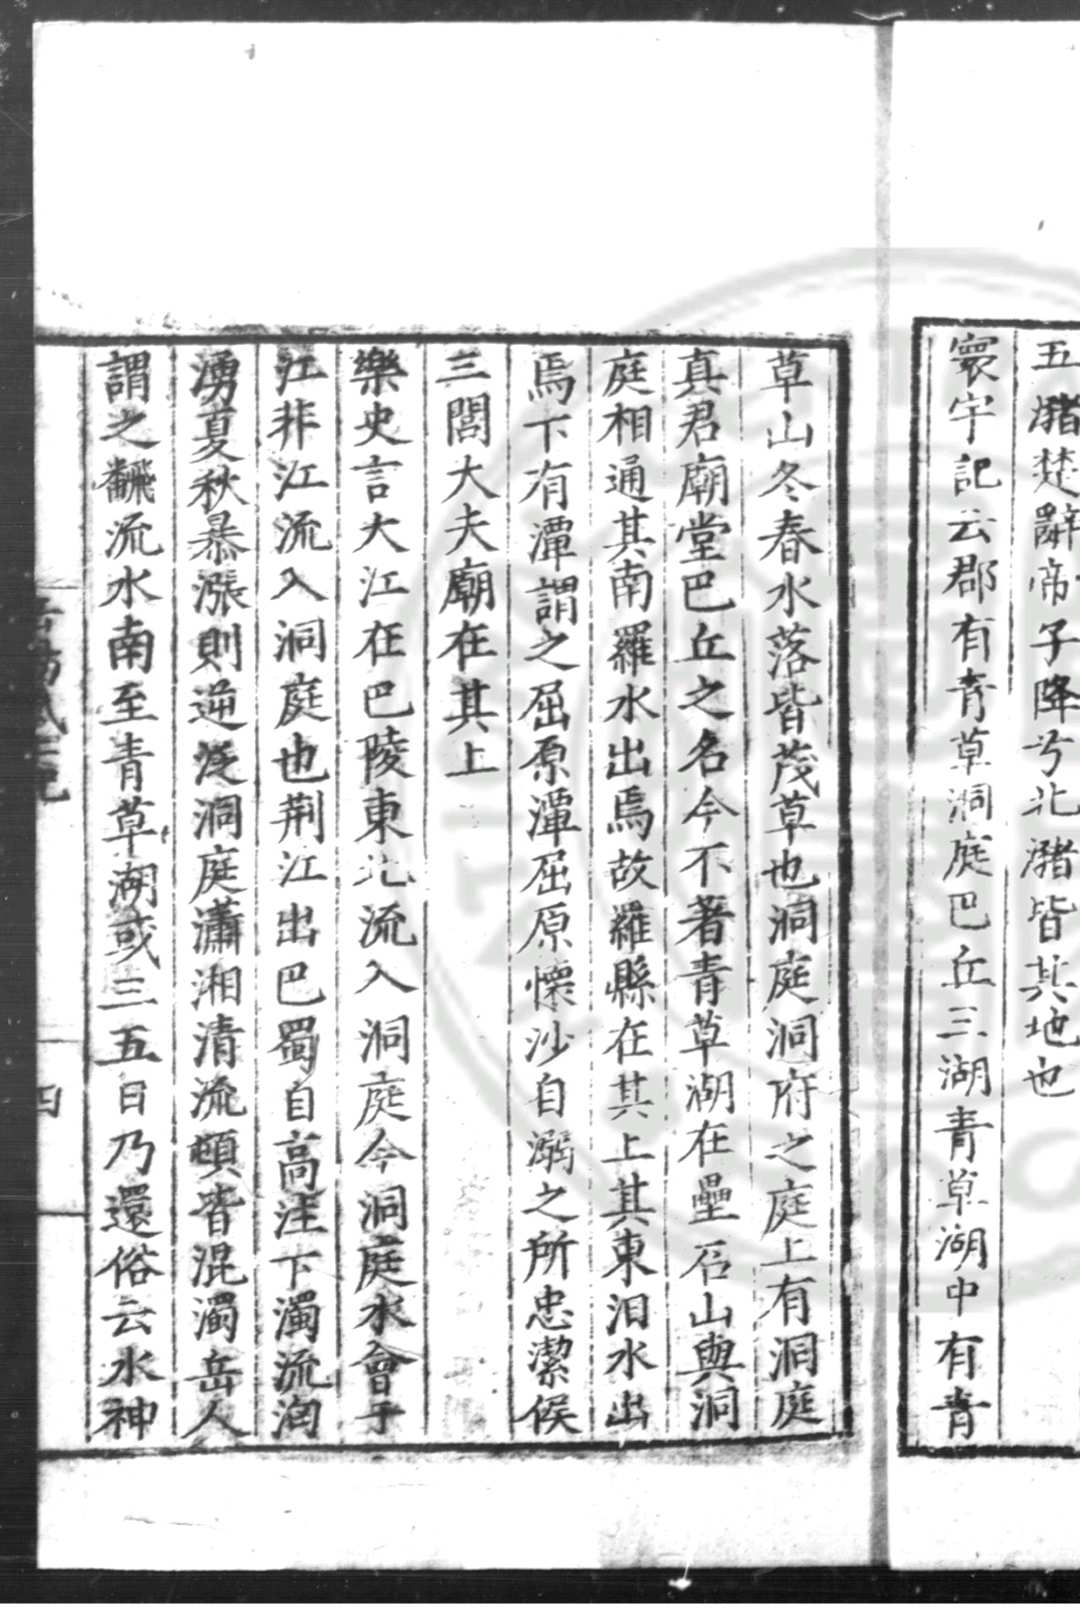 五瀦楚辭帝子降兮北瀦皆其地也
寰宇記云郡有青草洞庭巴丘三湖青草湖中有青
草山冬春水落皆茂草也洞庭洞府之庭上有洞庭
真君廟堂巴丘之名今不著青草湖在壘石山與洞
庭相通其南羅水出焉故羅縣在其上其東汨水出
焉下有潭謂之屈原潭屈原懷沙自溺之所忠潔侯
三閭大夫廟在其上
樂史言大江在巴陵東北流入洞庭今洞庭水會于
江非江流入洞庭也荆江出巴蜀自高注下濁流洶
湧夏秋暴漲則逆泛洞庭瀟湘清流頓皆混濁岳人
謂之飜流水南至青草湖或三五日乃還俗云水神
四